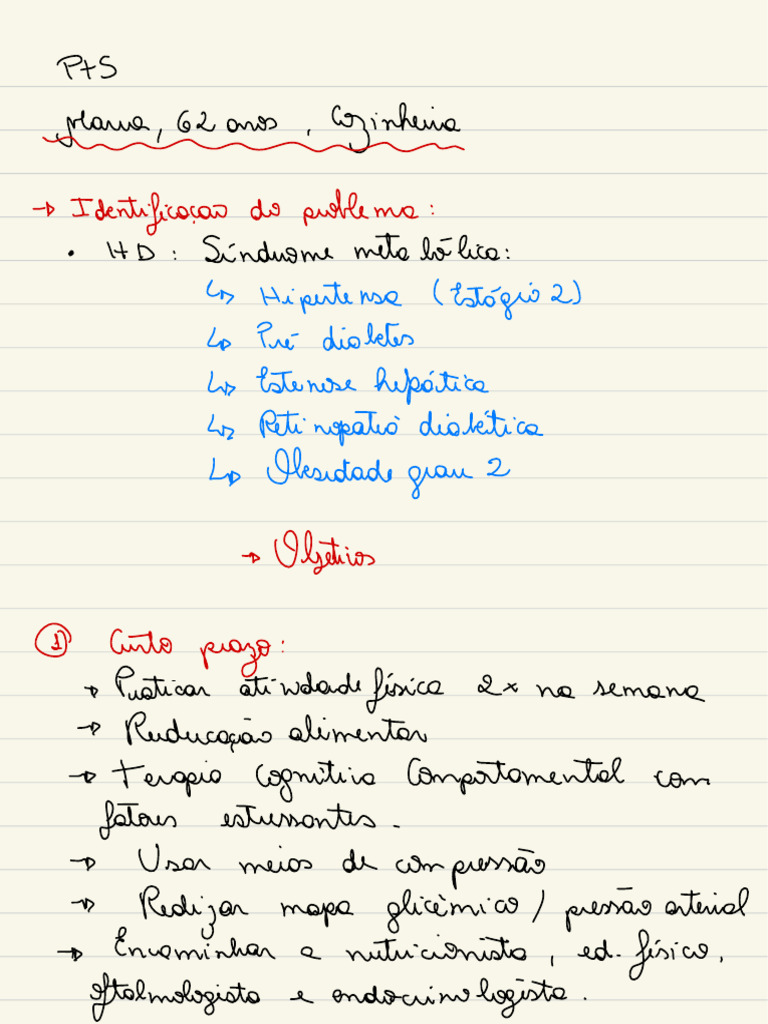 PTS
Maria, 62 anos, Cozinheira
→ Identificação do problema:
• HD: Síndrome metabólica:
↳ Hipertensa (Estágio 2)
↳ Pré diabetes
↳ Estenose hepática
↳ Retinopatia diabética
↳ Obesidade grau 2
→ Objetivos
① Curto prazo:
→ Praticar atividade física 2x na semana
→ Reeducação alimentar
→ Terapia Cognitiva Comportamental com
fatores estressantes.
→ Usar meios de compressão
→ Realizar mapa glicêmico / pressão arterial
→ Encaminhar a nutricionista, ed. físico,
oftalmologista e endocrinologista.